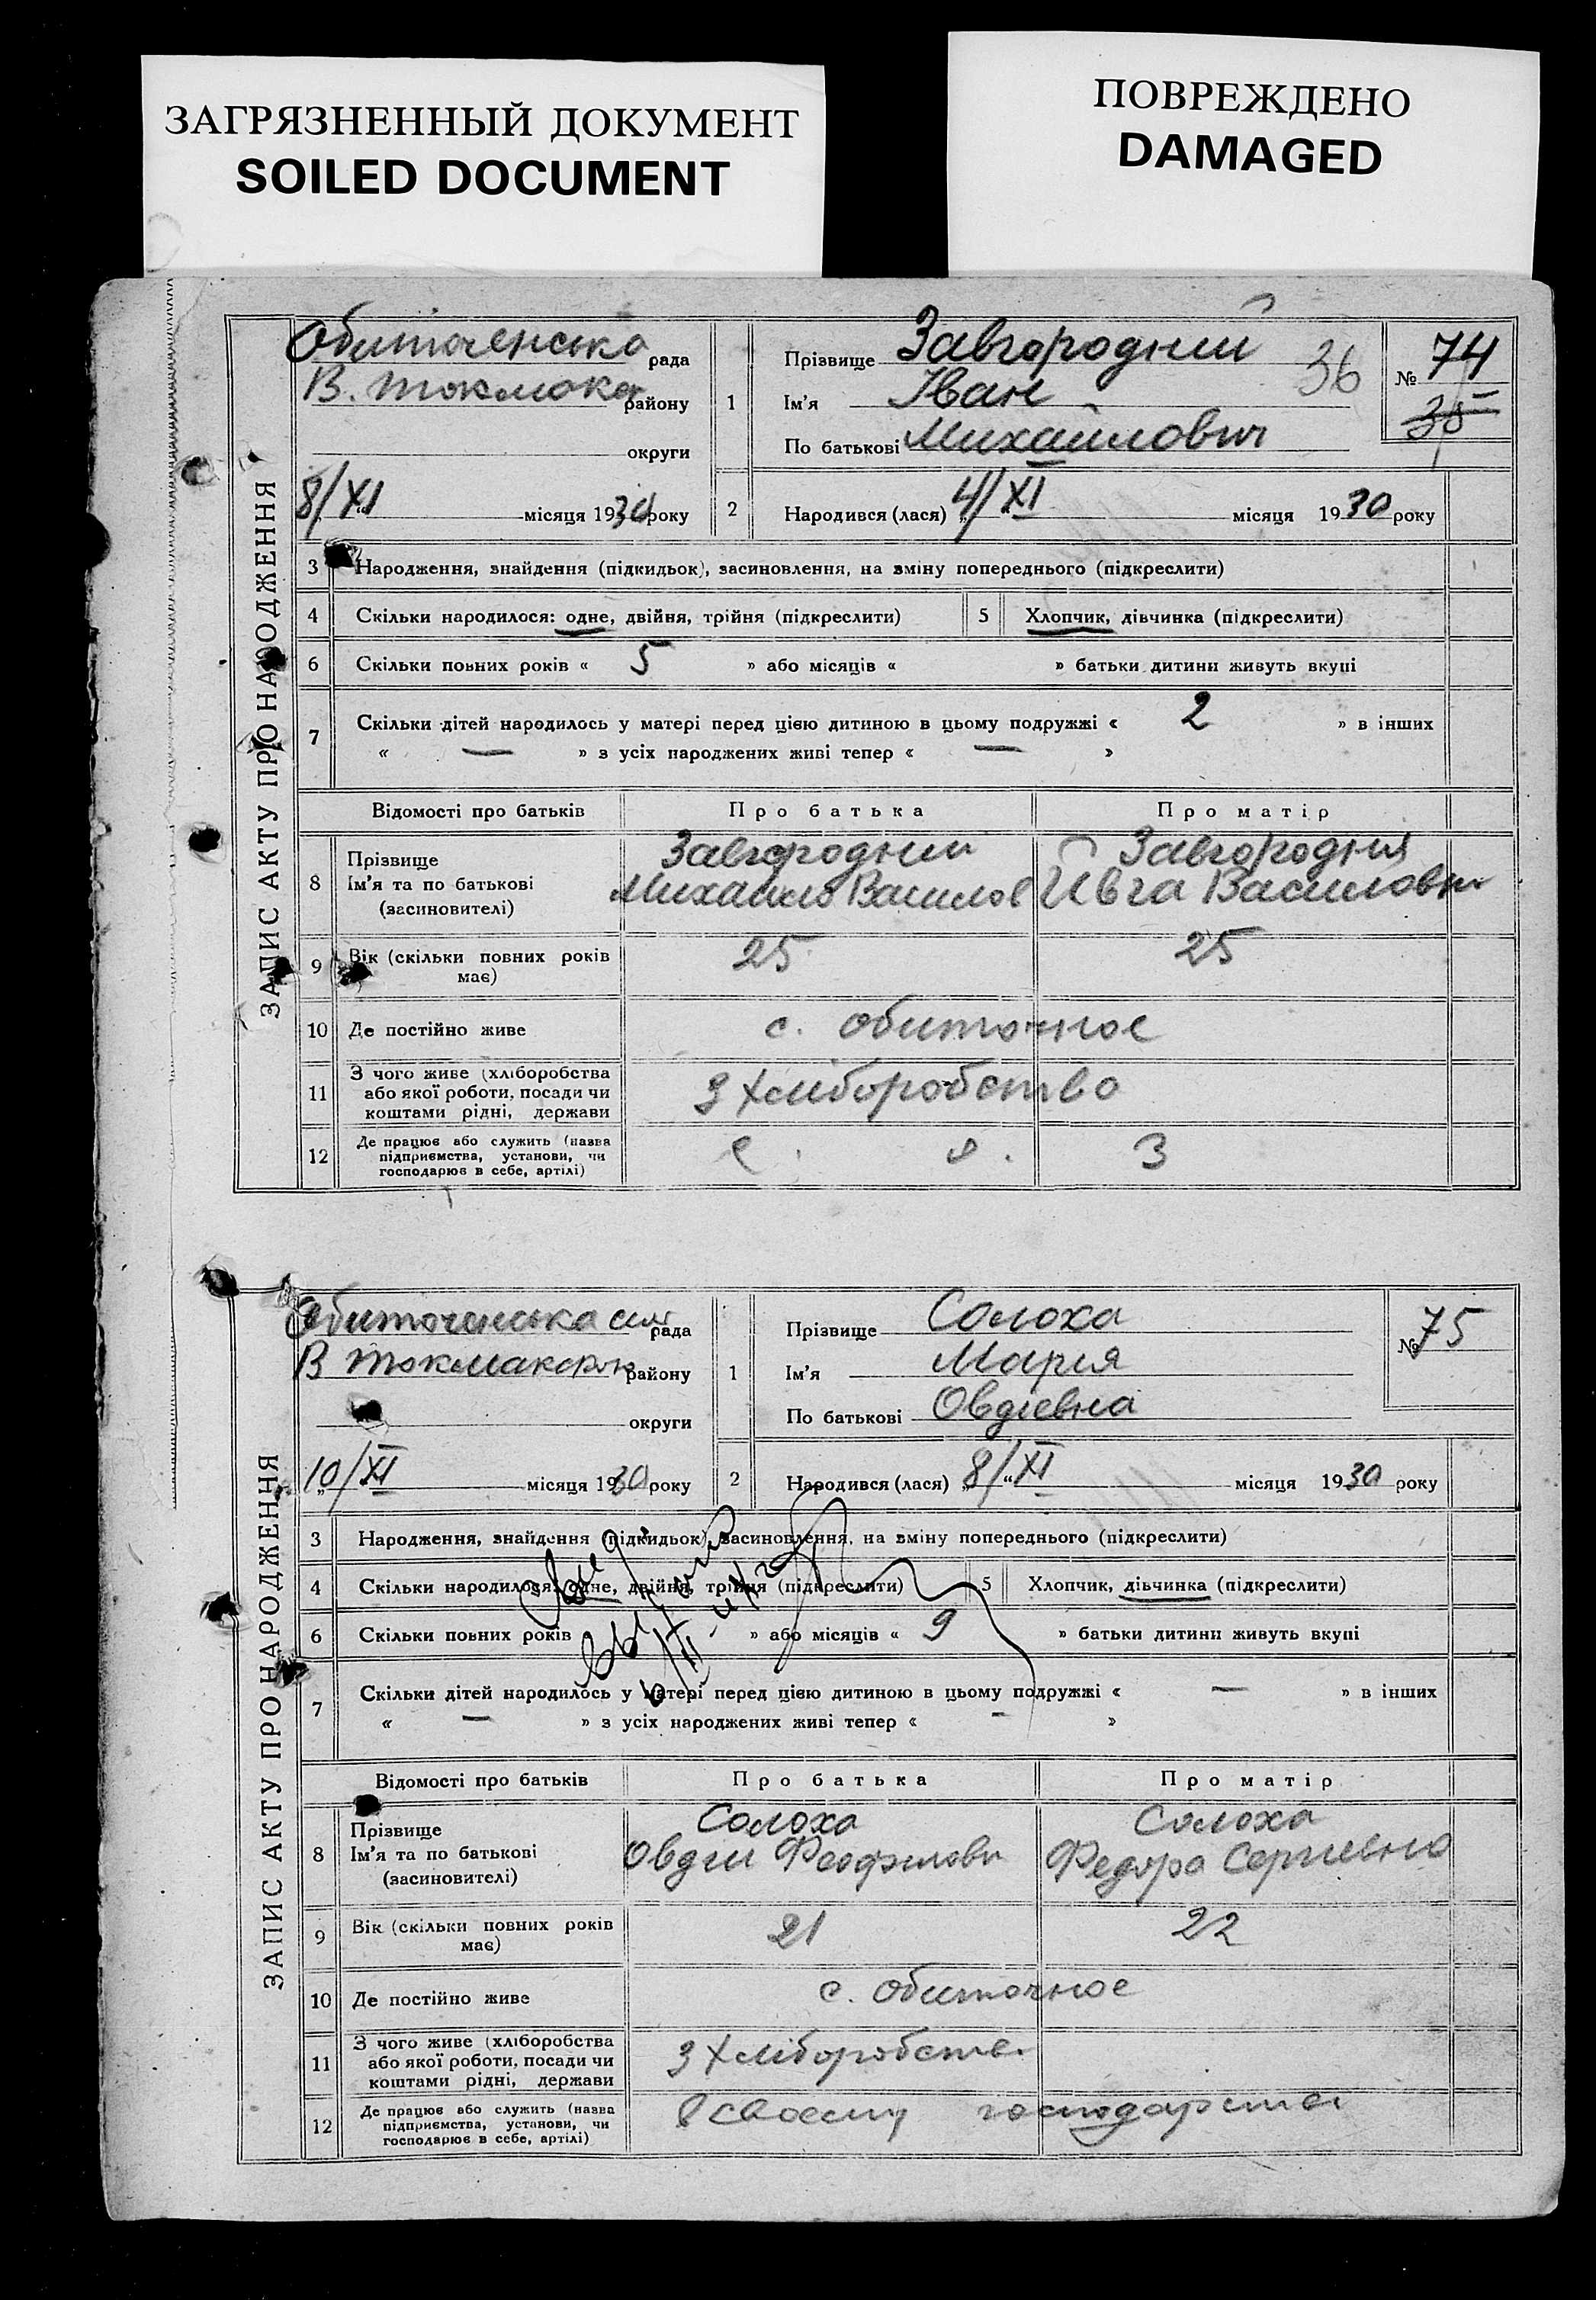 ЗАГРЯЗНЕННЫЙ ДОКУМЕНТ
SOILED DOCUMENT
ПОВРЕЖДЕНО
DAMAGED
ЗАПИС АКТУ ПРО НАРОДЖЕННЯ
Обиточенська рада
В. Токмака району
округи
8/XI місяця 1930 року
1
Прізвище Завгородний
36
Ім'я Іван
По батькові Михайлович
№ 74
35
2
Народився (лася) „4/XI місяця 1930 року
3 Народження, знайдення (підкидьок), засиновлення, на зміну попереднього (підкреслити)
4 Скільки народилося: одне, двійня, трійня (підкреслити) 5 Хлопчик, дівчинка (підкреслити)
6 Скільки повних років « 5 » або місяців « » батьки дитини живуть вкупі
7 Скільки дітей народилось у матері перед цією дитиною в цьому подружжі « 2 » в інших
« — » з усіх народжених живі тепер « — »
Відомості про батьків Про батька Про матір
8 Прізвище Ім'я та по батькові (засиновителі)
Завгородний Михайло Василов
Завгородня Ивга Василовн
9 Вік (скільки повних років має) 25 25
10 Де постійно живе с. Обиточное
11 З чого живе (хліборобства або якої роботи, посади чи коштами рідні, держави З хліборобство
12 Де працює або служить (назва підприємства, установи, чи господарює в себе, артілі) С. О. З
ЗАПИС АКТУ ПРО НАРОДЖЕННЯ
Обиточенська сил рада
В Токмакск району
округи
„10/XI місяця 1930 року
1
Прізвище Солоха
Ім'я Мария
По батькові Овдіевна
№ 75
2
Народився (лася) „8/“XI місяця 1930 року
3 Народження, знайдення (підкидьок), засиновлення, на зміну попереднього (підкреслити)
4 Скільки народилося: одне, двійня, трійня (підкреслити) 5 Хлопчик, дівчинка (підкреслити)
6 Скільки повних років « » або місяців « 9 » батьки дитини живуть вкупі
7 Скільки дітей народилось у матері перед цією дитиною в цьому подружжі « — » в інших
« — » з усіх народжених живі тепер « - »
Відомості про батьків Про батька Про матір
8 Прізвище Ім'я та по батькові (засиновителі)
Солоха Овдій Феофилови
Солоха Федора Сергіевна
9 Вік (скільки повних років має) 21 22
10 Де постійно живе с. Обиточное
11 З чого живе (хліборобства або якої роботи, посади чи коштами рідні, держави З хліборобства
12 Де працює або служить (назва підприємства, установи, чи господарює в себе, артілі) В своему господарства